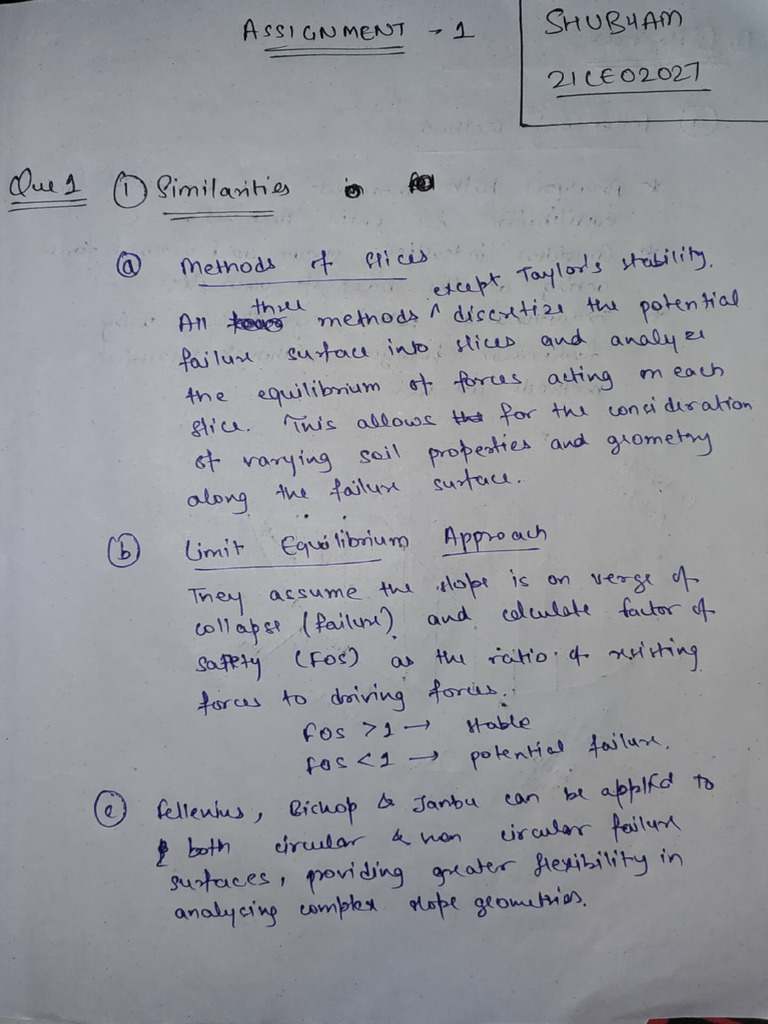 ASSIGNMENT - 1
SHUBHAM
21CE02027
Que 1 ① Similarities
ⓐ Methods of slices
except Taylor's stability.
All three methods ^ discretize the potential
failure surface into slices and analyze
the equilibrium of forces acting on each
slice. This allows for the consideration
of varying soil properties and geometry
along the failure surface.
ⓑ Limit Equilibrium Approach
They assume the slope is on verge of
collapse (failure) and calculate factor of
safety (FOS) as the ratio of resisting
forces to driving forces.
FOS > 1 → stable
FOS < 1 → potential failure.
ⓒ Fellenius, Bishop & Janbu can be applied to
both circular & non circular failure
surfaces, providing greater flexibility in
analycing complex slope geometries.